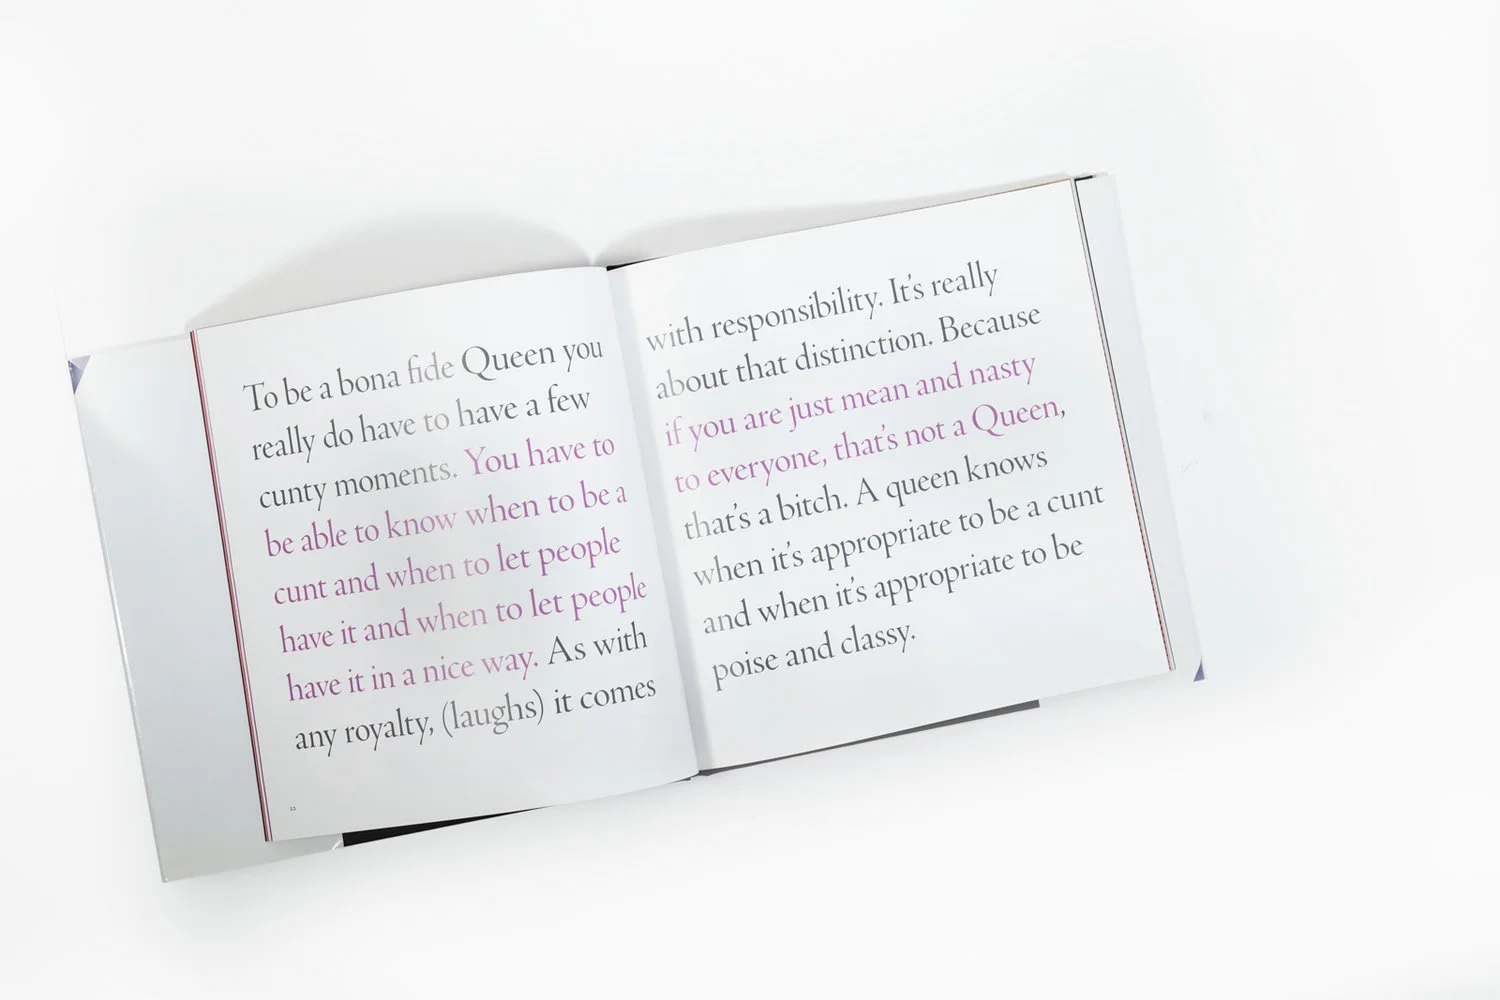 To be a bona fide Queen you
really do have to have a few
cunty moments. You have to
be able to know when to be a
cunt and when to let people
have it and when to let people
have it in a nice way. As with
any royalty, (laughs) it comes
22
with responsibility. It's really
about that distinction. Because
if you are just mean and nasty
to everyone, that's not a Queen,
that's a bitch. A queen knows
when it's appropriate to be a cunt
and when it's appropriate to be
poise and classy.